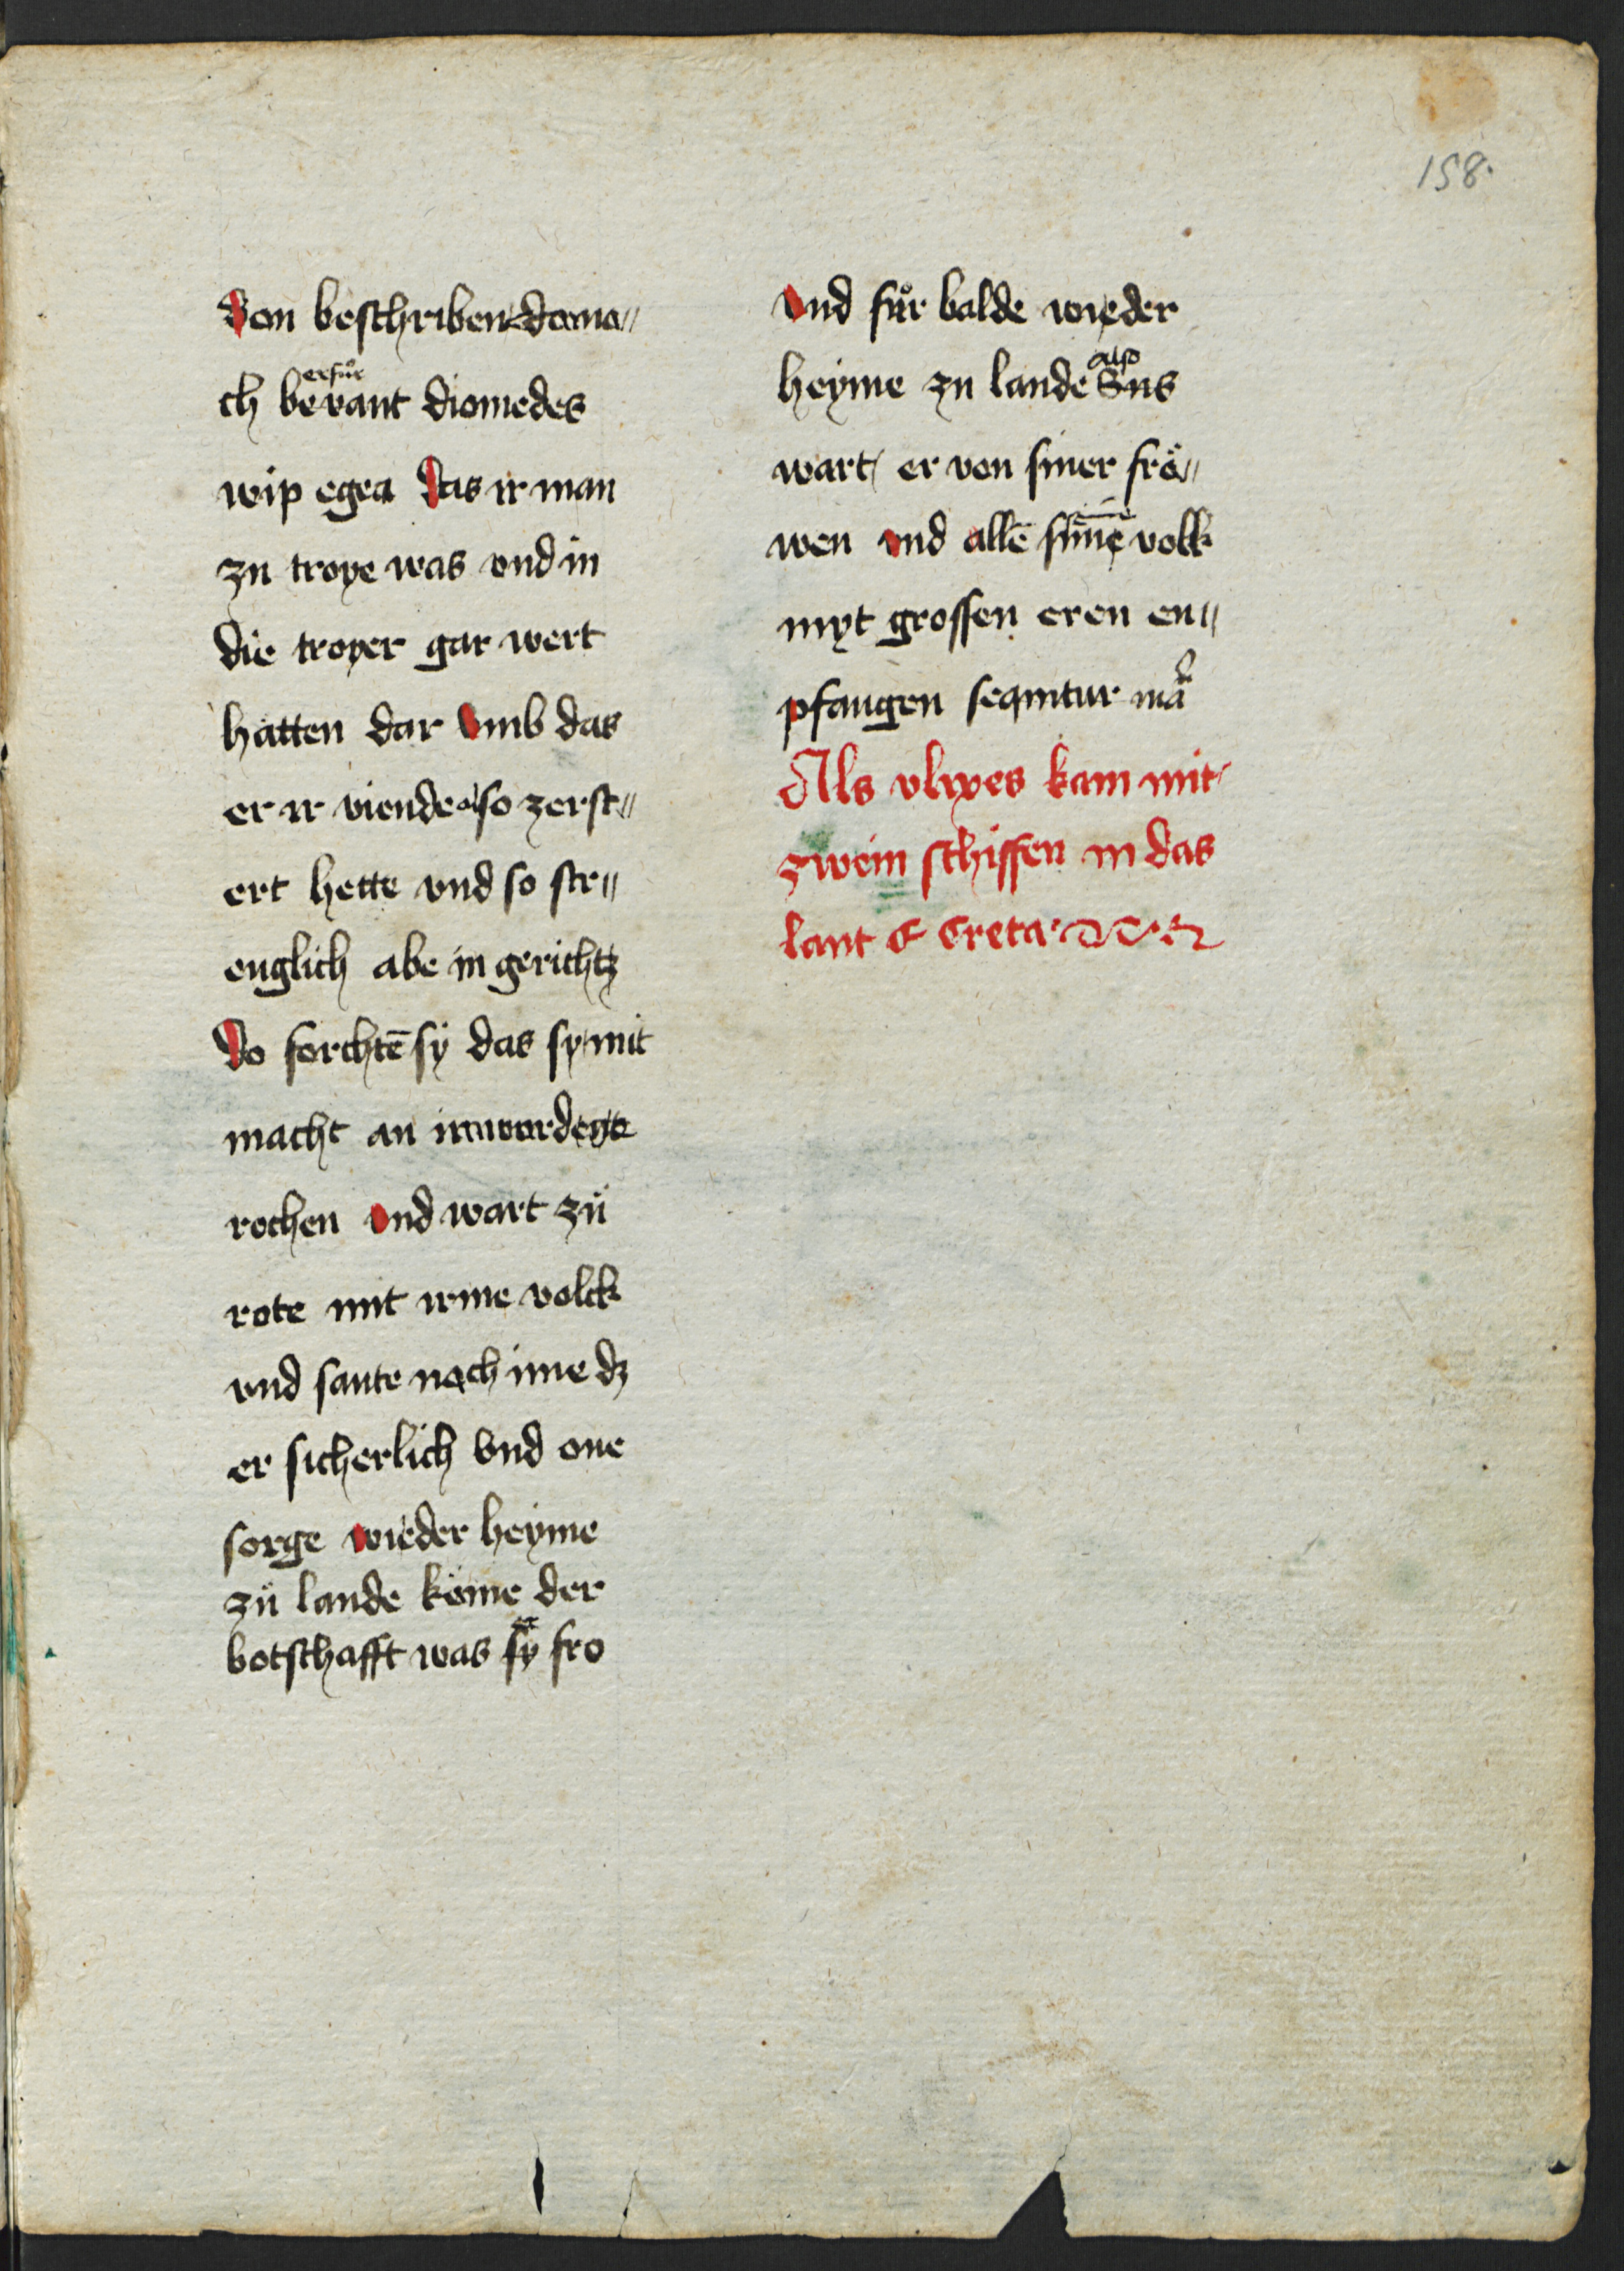 158.
Von beschriben dorna〃
erfůr
ch bevant diomedes
wip egea Das ir man
zu troye was vnd in
die troyer gar wert
hatten dar vmb das
er ir viende also zerst〃
ert hette vnd so str〃
englich abe in gerichtz
Do forchtē sÿ das sy mit
macht an in wurde ge
rochen vnd wart zů
rote mit irme volck
vnd sante noch ime dz
er sicherlich vnd one
sorge wieder heyme
zů lande köme der
botschafft was sÿ fro
vnd fůr balde wieder
also
heyme zu lande Sus
wart er von siner frö〃
wen vnd allē volk
myt grossen eren en〃
pfangen seqmtur
Als vlixes kam mit
zwein schiffen in das
lant C Creta